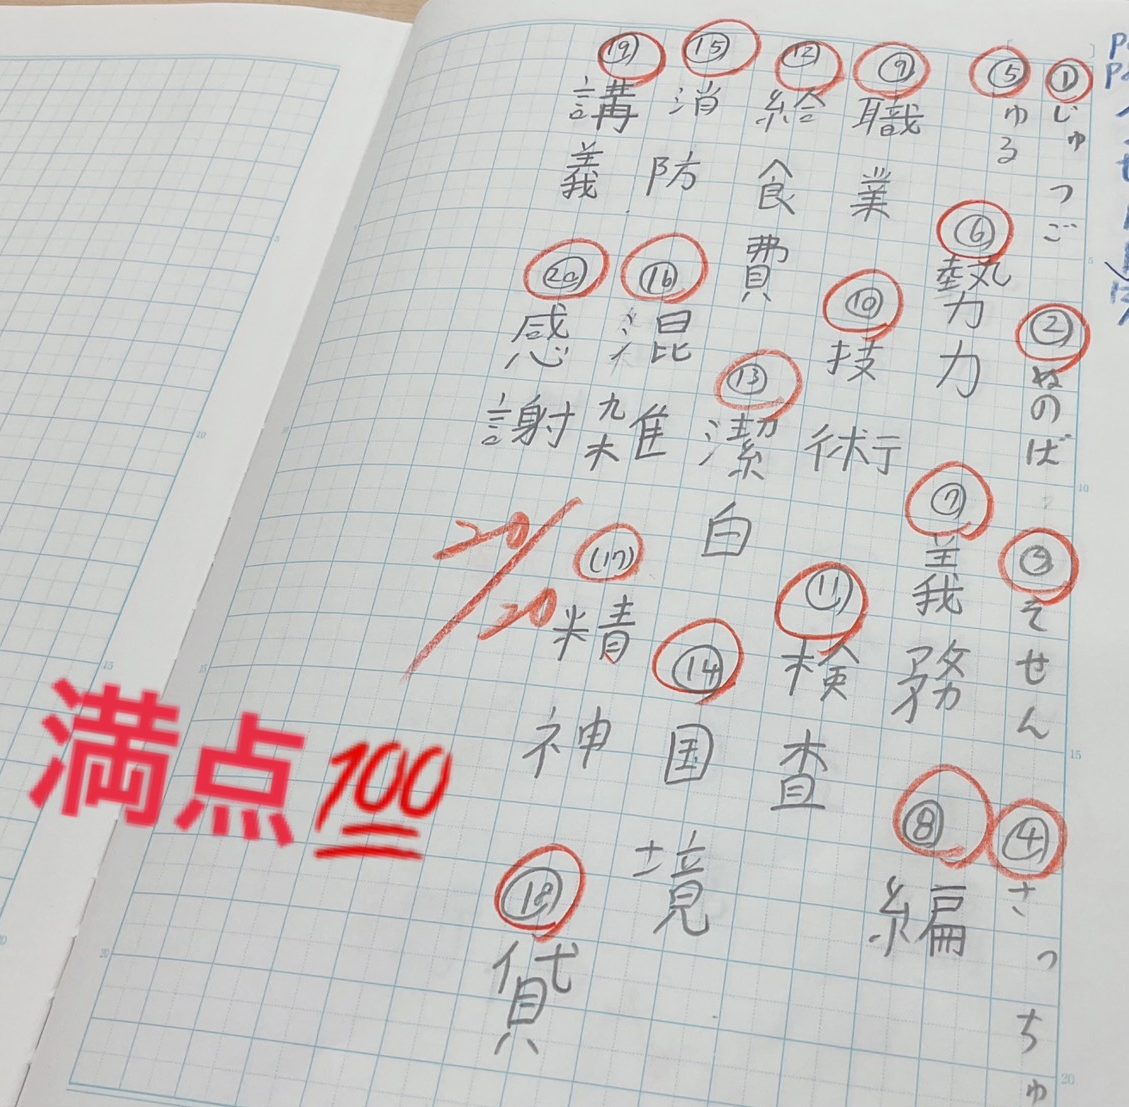 ①じゅつご
②ぬのば
③そせん
④さっちゅ
⑤ゆる
⑥勢力
⑦義務
⑧編
⑨職業
⑩技術
⑪検査
⑫給食費
⑬潔白
⑭国境
⑮消防
⑯混雑
⑰精神
⑱貸
⑲講義
⑳感謝
20/20
満点100
5
10
15
20
5
10
15
20